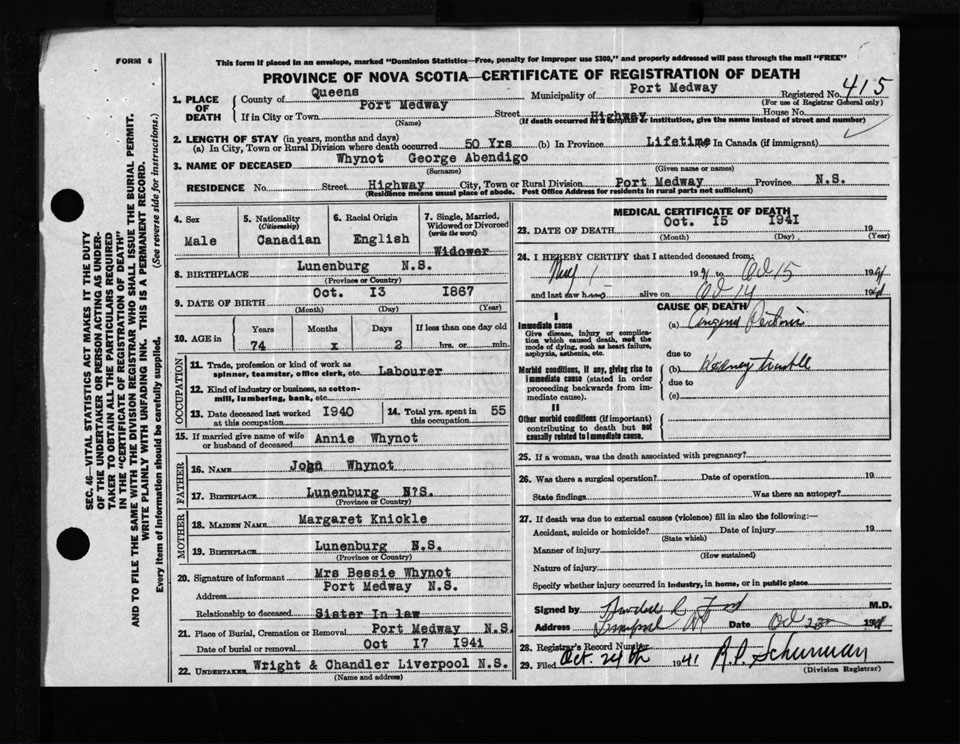 FORM 6
This form if placed in an envelope, marked "Dominion Statistics—Free, penalty for improper use $300," and properly addressed will pass through the mail "FREE"
PROVINCE OF NOVA SCOTIA—CERTIFICATE OF REGISTRATION OF DEATH
1. PLACE OF DEATH County of Queens Municipality of Port Medway Registered No. 415
(For use of Registrar General only)
If in City or Town Port Medway Street Highway House No.
(Name) (If death occurred in a hospital or institution, give the name instead of street and number)
2. LENGTH OF STAY (in years, months and days)
(a) In City, Town or Rural Division where death occurred 50 Yrs (b) In Province Lifetime In Canada (if immigrant)
3. NAME OF DECEASED Whynot George Abendigo
(Surname) (Given name or names)
RESIDENCE No. Street Highway City, Town or Rural Division Port Medway Province N.S.
(Residence means usual place of abode. Post Office Address for residents in rural parts not sufficient)
4. Sex Male
5. Nationality (Citizenship) Canadian
6. Racial Origin English
7. Single, Married, Widowed or Divorced (write the word) Widower
8. BIRTHPLACE Lunenburg N.S.
(Province or Country)
9. DATE OF BIRTH Oct. 13 1867
(Month) (Day) (Year)
10. AGE in Years Months Days If less than one day old
74 x 2 hrs. or min.
OCCUPATION
11. Trade, profession or kind of work as spinner, teamster, office clerk, etc. Labourer
12. Kind of industry or business, as cotton-mill, lumbering, bank, etc.
13. Date deceased last worked at this occupation 1940
14. Total yrs. spent in this occupation 55
15. If married give name of wife or husband of deceased Annie Whynot
FATHER
16. NAME John Whynot
17. BIRTHPLACE Lunenburg N?S.
(Province or Country)
MOTHER
18. MAIDEN NAME Margaret Knickle
19. BIRTHPLACE Lunenburg N.S.
(Province or Country)
20. Signature of informant Mrs Bessie Whynot
Address Port Medway N.S.
Relationship to deceased Sister In law
21. Place of Burial, Cremation or Removal Port Medway N.S.
Date of burial or removal Oct 17 1941
22. UNDERTAKER Wright & Chandler Liverpool N.S.
(Name and address)
MEDICAL CERTIFICATE OF DEATH
23. DATE OF DEATH Oct. 15 1941 19
(Month) (Day) (Year)
24. I HEREBY CERTIFY that I attended deceased from:
1941 to Oct 15 1941
and last saw him alive on Oct 14 1941
CAUSE OF DEATH
I
Immediate cause (a) Angina
Give disease, injury or complication which caused death, not the mode of dying, such as heart failure, asphyxia, asthenia, etc.
due to
Morbid conditions, if any, giving rise to immediate cause (stated in order proceeding backwards from immediate cause). (b) Kidney trouble
due to
(c)
II
Other morbid conditions (if important) contributing to death but not causally related to immediate cause.
25. If a woman, was the death associated with pregnancy?
26. Was there a surgical operation? Date of operation 19
State findings Was there an autopsy?
27. If death was due to external causes (violence) fill in also the following:—
Accident, suicide or homicide? Date of injury 19
(State which)
Manner of injury
(How sustained)
Nature of injury
Specify whether injury occurred in industry, in home, or in public place
Signed by M.D.
Address Liverpool NS Date Oct 23 1941
28. Registrar's Record Number
29. Filed Oct. 24th 1941 R.P. Schurman
(Division Registrar)
SEC. 46—VITAL STATISTICS ACT MAKES IT THE DUTY
OF THE UNDERTAKER OR PERSON ACTING AS UNDER-
TAKER TO OBTAIN ALL THE PARTICULARS REQUIRED
IN THE "CERTIFICATE OF REGISTRATION OF DEATH"
AND TO FILE THE SAME WITH THE DIVISION REGISTRAR WHO SHALL ISSUE THE BURIAL PERMIT.
WRITE PLAINLY WITH UNFADING INK. THIS IS A PERMANENT RECORD.
Every item of information should be carefully supplied. (See reverse side for instructions.)